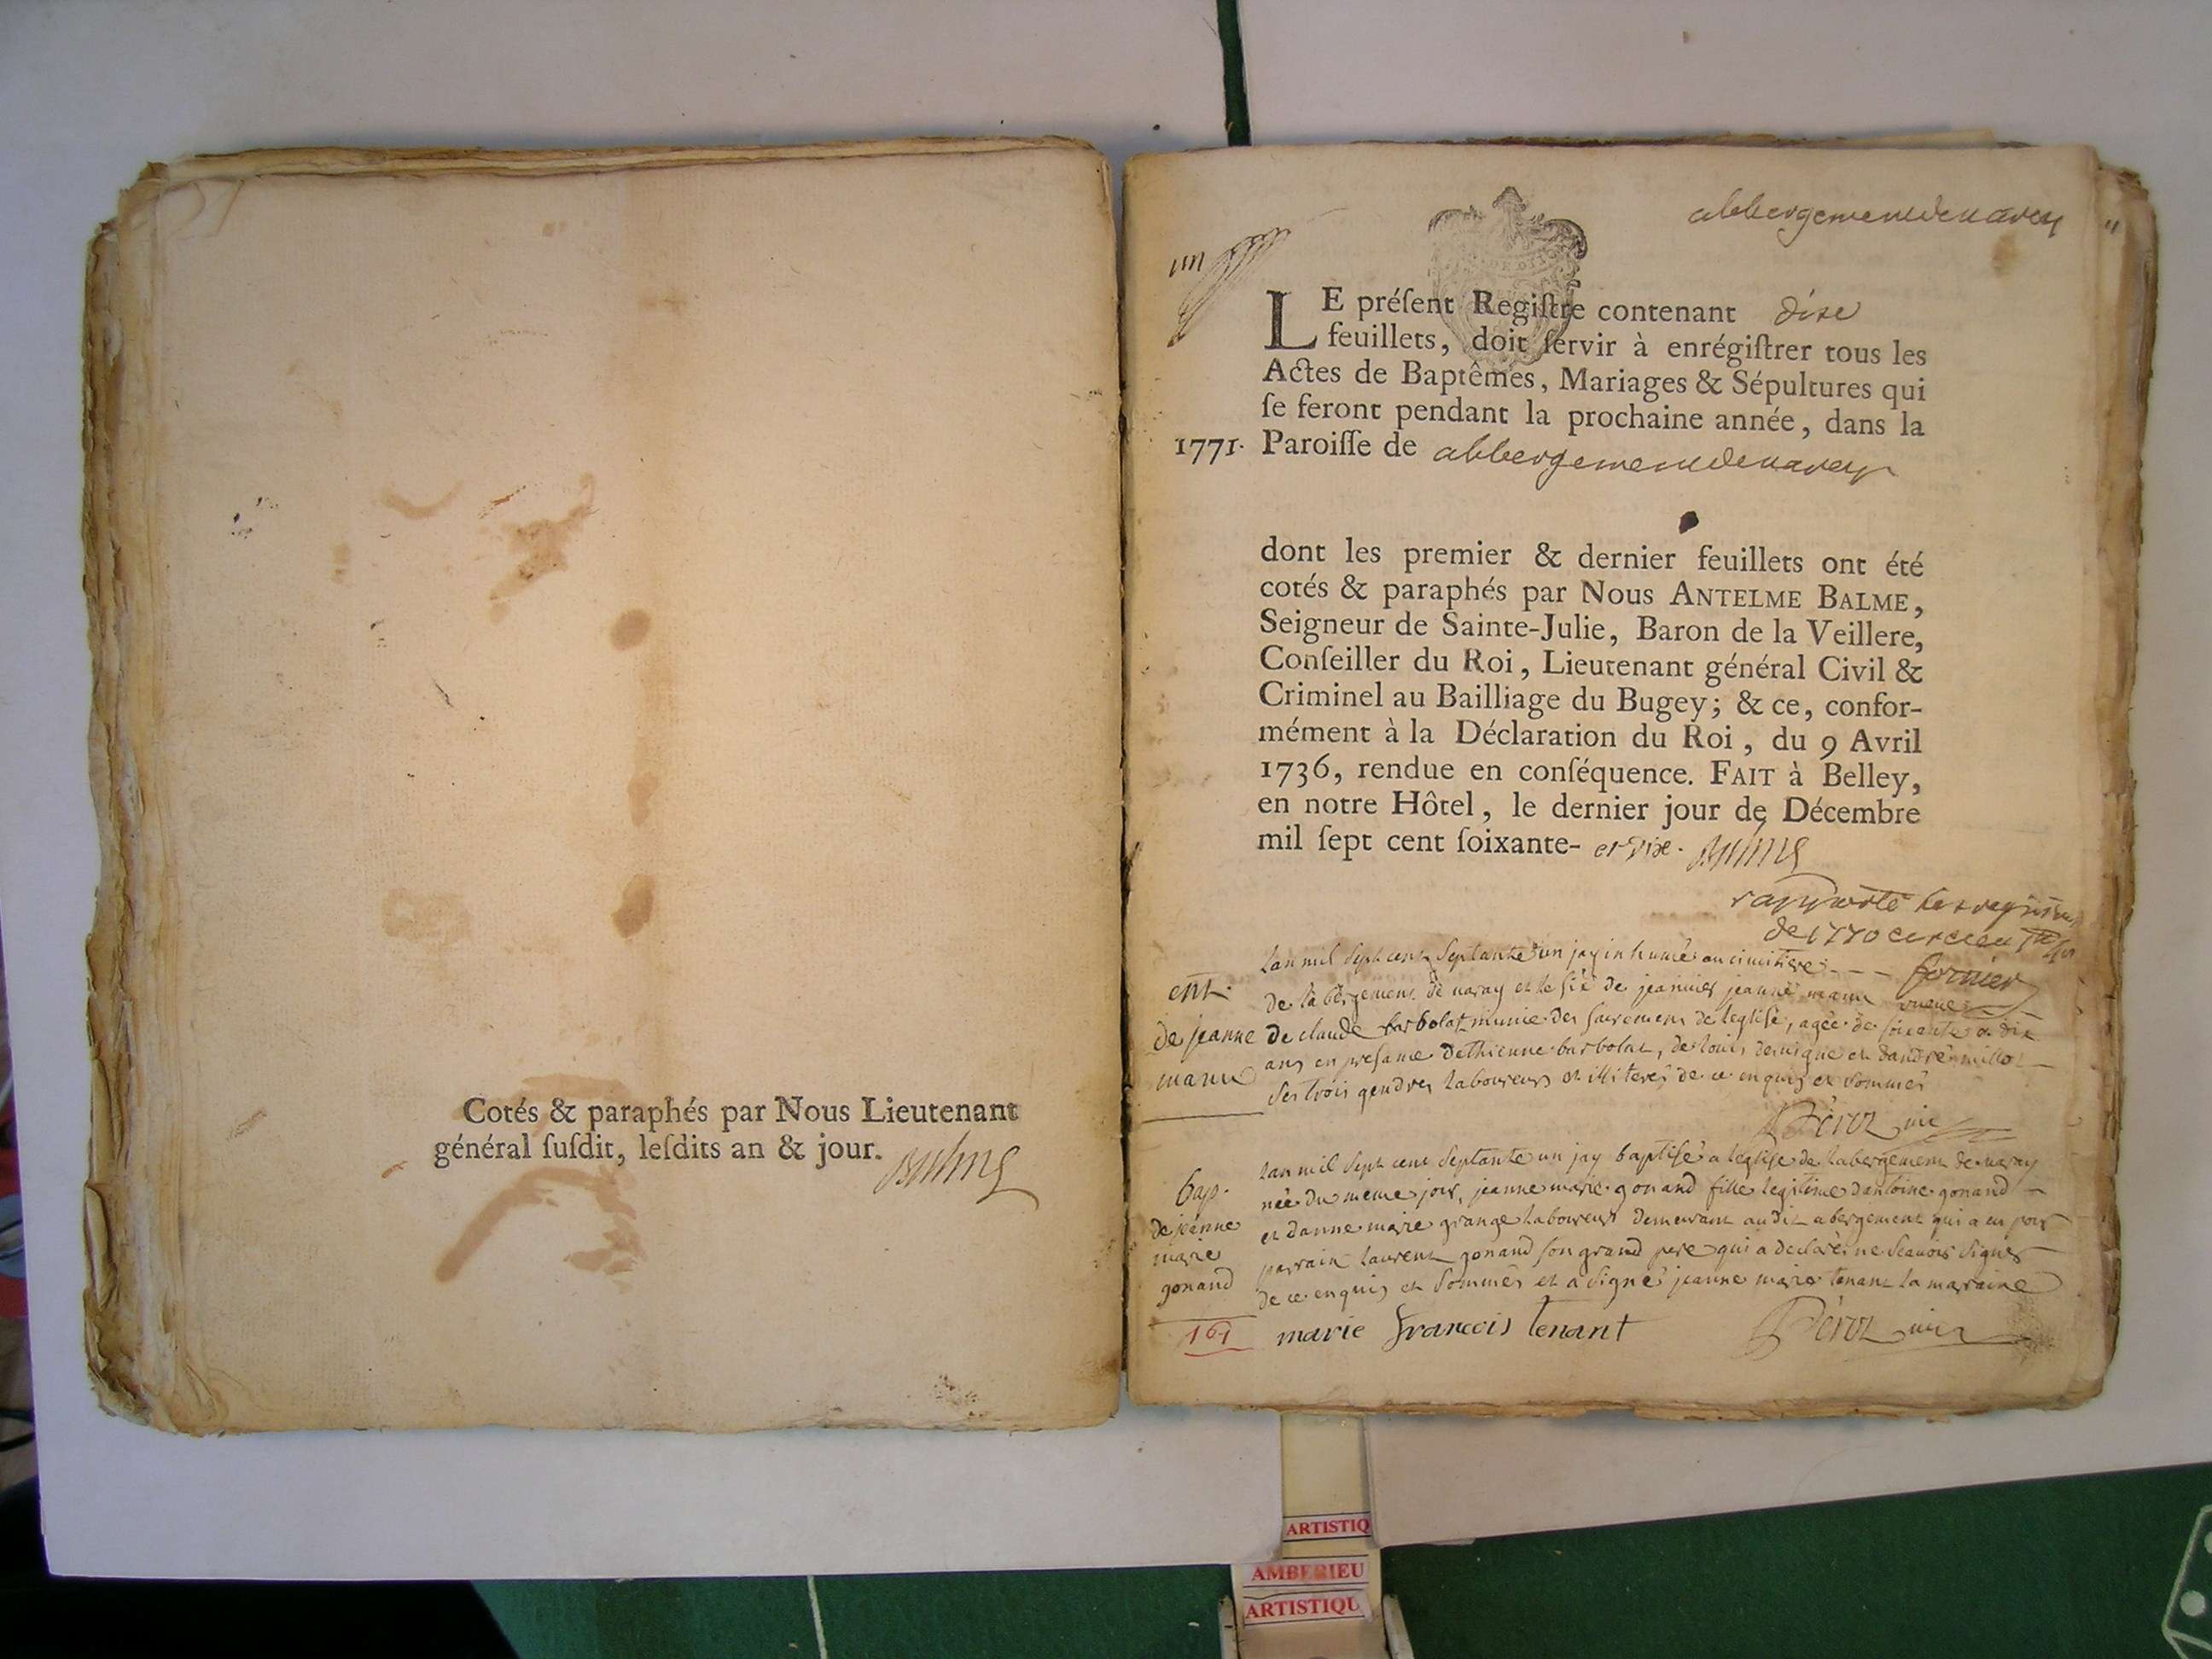 Cotés & paraphés par Nous Lieutenant
général ſuſdit, leſdits an & jour.
Balme
abbergement de varey
un
LE préſent Regiſtre contenant dixe
feuillets, doit ſervir à enrégiſtrer tous les
Actes de Baptêmes, Mariages & Sépultures qui
ſe feront pendant la prochaine année, dans la
1771. Paroiſſe de abbergement de varey
dont les premier & dernier feuillets ont été
cotés & paraphés par Nous ANTELME BALME,
Seigneur de Sainte-Julie, Baron de la Veillere,
Conſeiller du Roi, Lieutenant général Civil &
Criminel au Bailliage du Bugey; & ce, confor-
mément à la Déclaration du Roi, du 9 Avril
1736, rendue en conſéquence. FAIT à Belley,
en notre Hôtel, le dernier jour de Décembre
mil ſept cent ſoixante- et dix. Balme
rapporté les registres
de 1770
lan mil sept cent septante un jay inhumé au cimitiere
de labergement de varay et le six de janvier jeanne manu veuve
de claude barbolat munie des sacremens de leglise, agée de soixante et dix
ans en presance dethienne barbolat, de louis et dandré millot
ses trois gendres laboureurs et illiterés de ce enquis et sommés
ent.
de jeanne
manu
Péroz vic
lan mil sept cent septante un jay baptisé a leglise de labergement de varay
née du meme jour, jeanne marie gonand fille legitime dantoine gonand
et danne marie grange laboureurs demeurant audit abergement qui a eu pour
parrain laurent gonand son grand pere qui a declaré ne scavoir signer
de ce enquis et sommés et a signé jeanne marie tenant la maraine
bap.
de jeanne
marie
gonand
161
marie francois tenant
Péroz vic
ARTISTIQ
AMBERIEU
ARTISTIQU